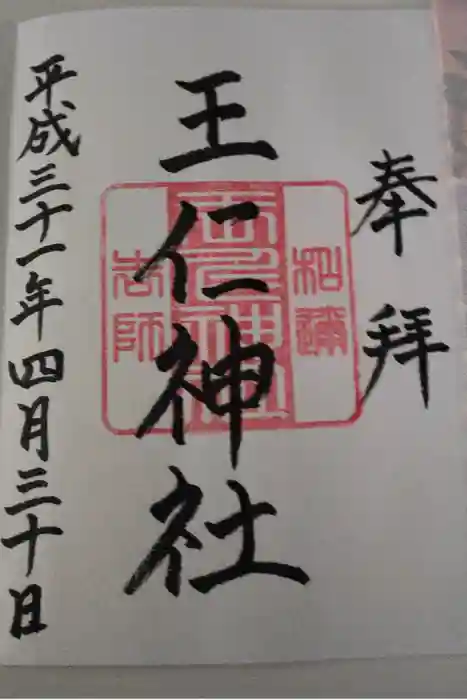 奉拝
王仁神社
平成三十一年四月三十日